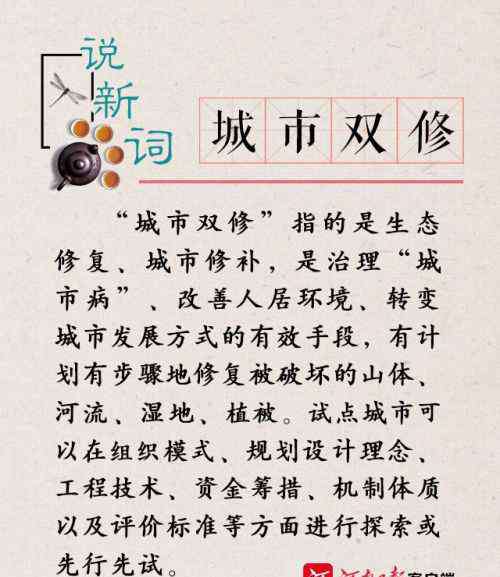 说新词
城市双修
“城市双修”指的是生态
修复、城市修补，是治理“城
市病”、改善人居环境、转变
城市发展方式的有效手段，有计
划有步骤地修复被破坏的山体、
河流、湿地、植被。试点城市可
以在组织模式、规划设计理念、
工程技术、资金筹措、机制体质
以及评价标准等方面进行探索或
先行先试。
河南日报客户端